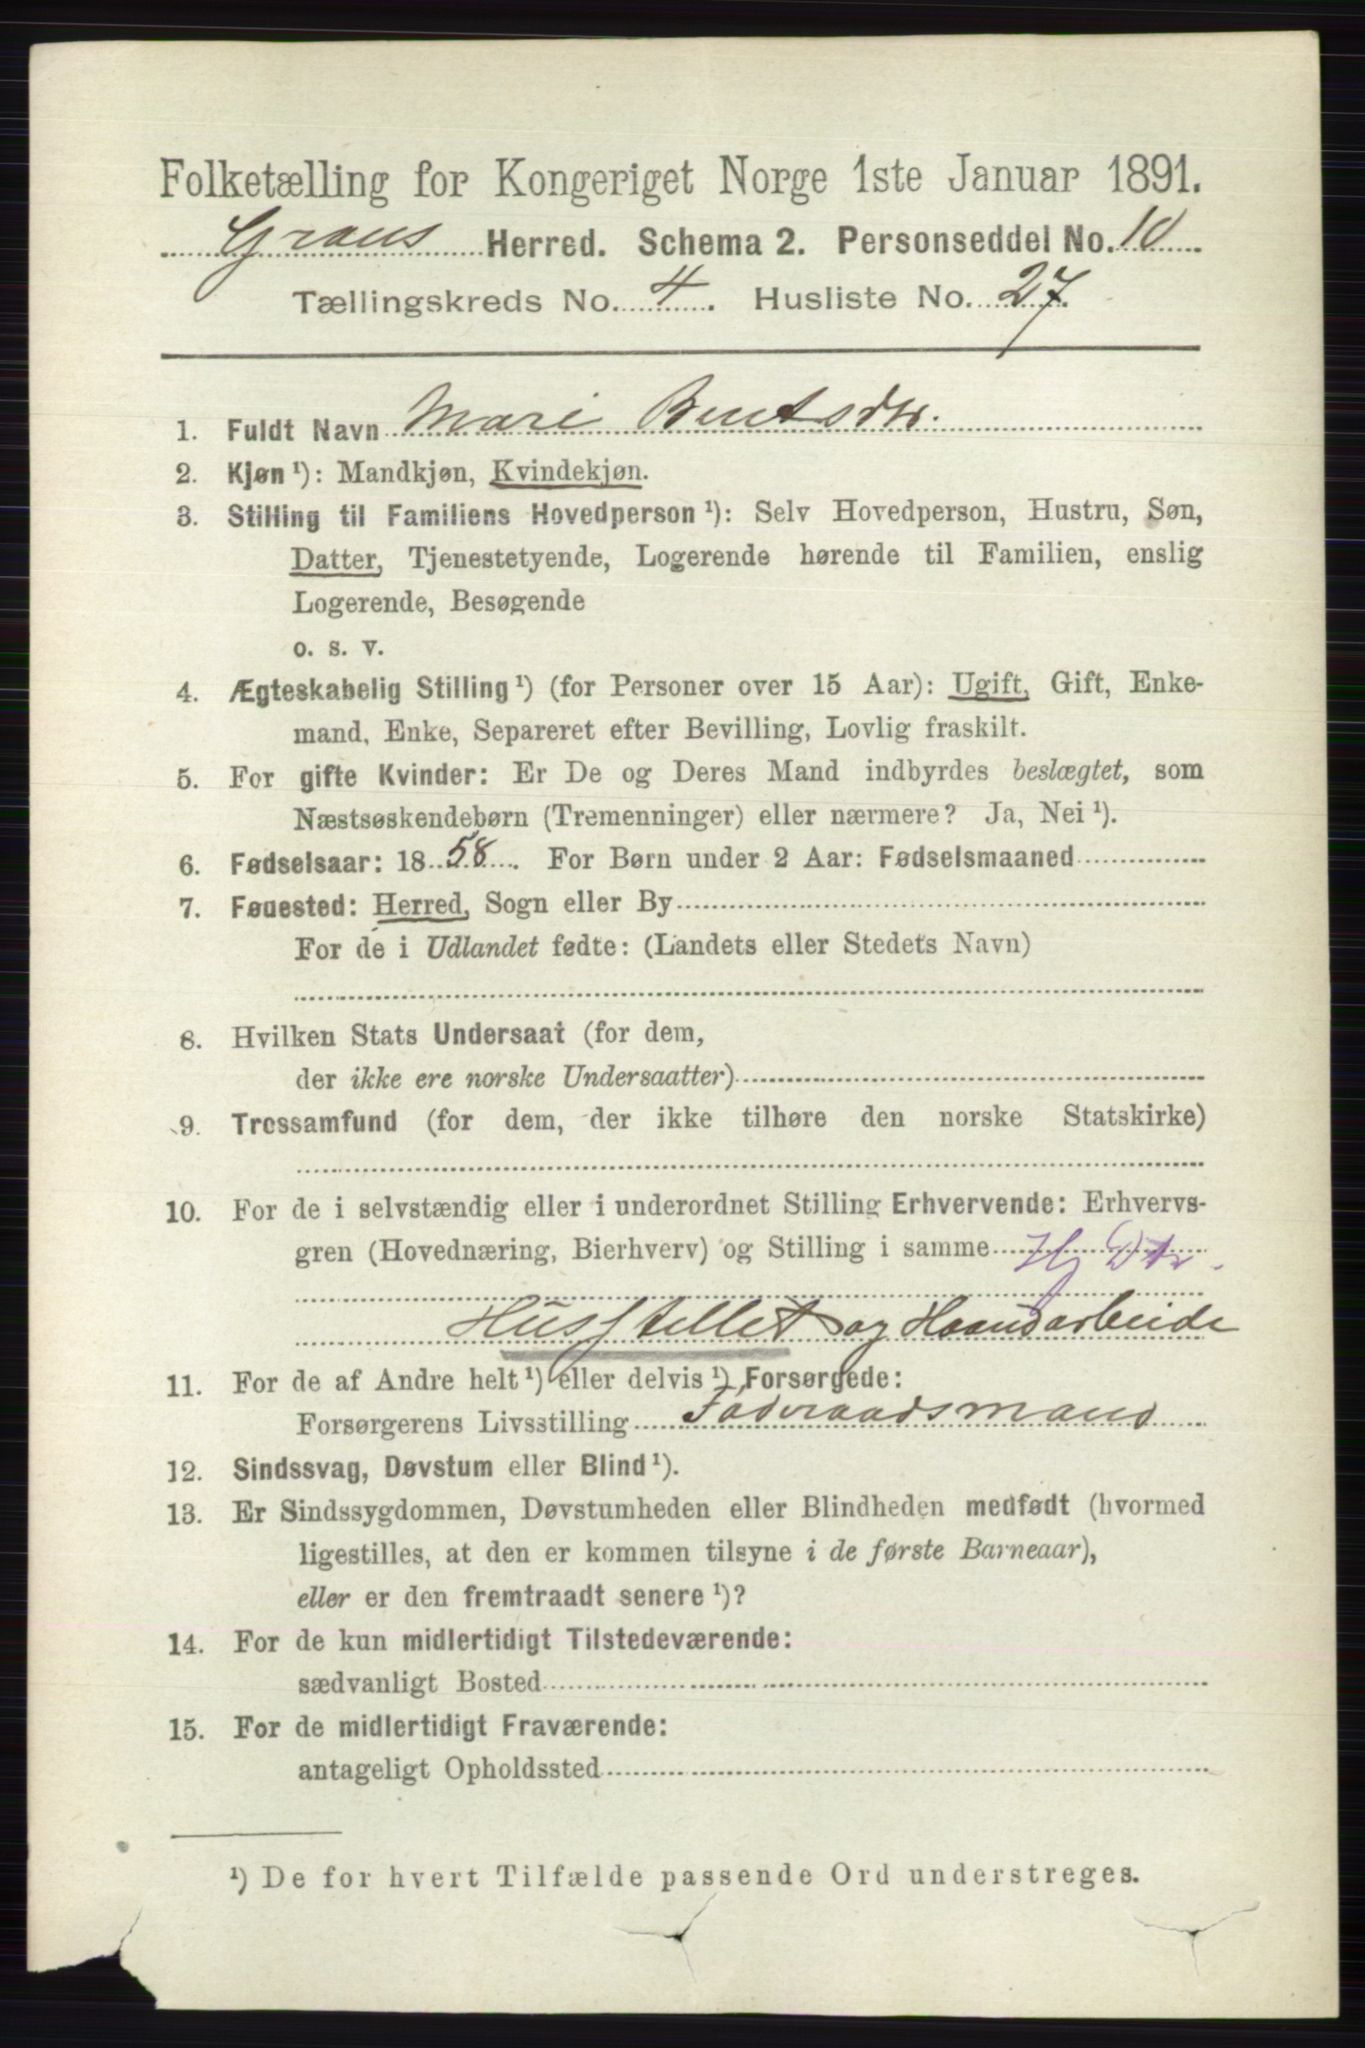 Folketælling for Kongeriget Norge 1ste Januar 1891.
Grans Herred. Schema 2. Personseddel No. 10
Tællingskreds No. 4. Husliste No. 27.
1. Fuldt Navn Mari Bentsdtr.
2. Kjøn ¹): Mandkjøn, Kvindekjøn.
3. Stilling til Familiens Hovedperson ¹): Selv Hovedperson, Hustru, Søn,
Datter, Tjenestetyende, Logerende hørende til Familien, enslig
Logerende, Besøgende
o. s. v.
4. Ægteskabelig Stilling ¹) (for Personer over 15 Aar): Ugift, Gift, Enke-
mand, Enke, Separeret efter Bevilling, Lovlig fraskilt.
5. For gifte Kvinder: Er De og Deres Mand indbyrdes beslægtet, som
Næstsøskendebørn (Tremenninger) eller nærmere? Ja, Nei ¹).
6. Fødselsaar: 1858. For Børn under 2 Aar: Fødselsmaaned
7. Føuested: Herred, Sogn eller By
For de i Udlandet fødte: (Landets eller Stedets Navn)
8. Hvilken Stats Undersaat (for dem,
der ikke ere norske Undersaatter)
9. Trossamfund (for dem, der ikke tilhøre den norske Statskirke)
10. For de i selvstændig eller i underordnet Stilling Erhvervende: Erhvervs-
gren (Hovednæring, Bierhverv) og Stilling i samme Hj Dtr.
Husstellet og Haandarbeide
11. For de af Andre helt ¹) eller delvis ¹) Forsørgede:
Forsørgerens Livsstilling Föderaadsmand
12. Sindssvag, Døvstum eller Blind ¹).
13. Er Sindssygdommen, Døvstumheden eller Blindheden medfødt (hvormed
ligestilles, at den er kommen tilsyne i de første Barneaar),
eller er den fremtraadt senere ¹)?
14. For de kun midlertidigt Tilstedeværende:
sædvanligt Bosted
15. For de midlertidigt Fraværende:
antageligt Opholdssted
¹) De for hvert Tilfælde passende Ord understreges.